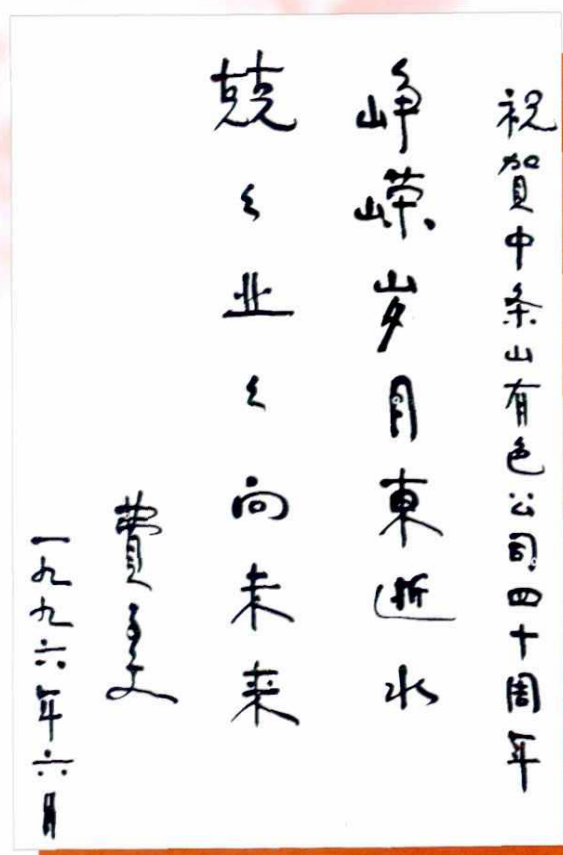 祝賀中条山有色公司四十周年
峥嵘岁月東逝水
兢々业々向未来
費子文
一九九六年六月